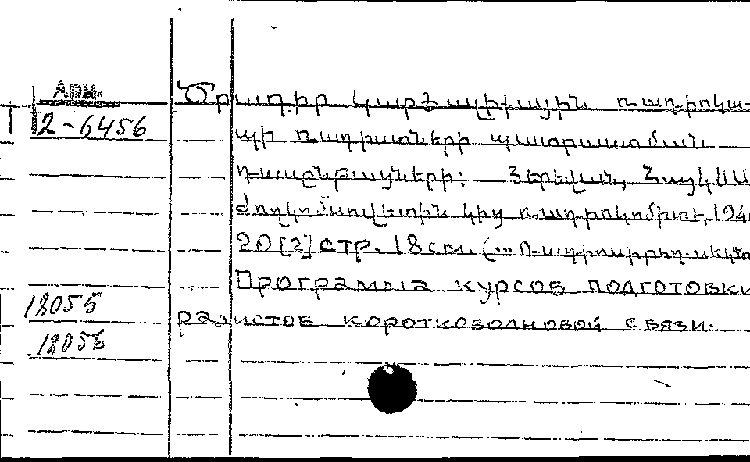 Арм.
2-6456
Ծրագիր կարճալիքային ռադիոկա-
պի ռադիստների պատրաստման
դասընթացների: Յերեվան, Հայկ ՍՍ
Ժողկոմսովետին կից ռադիոկոմիտե, 194
20 [2] стр. 18 см. (...
Программа курсов подготовки
радистов коротковолновой связи.
18055
18056